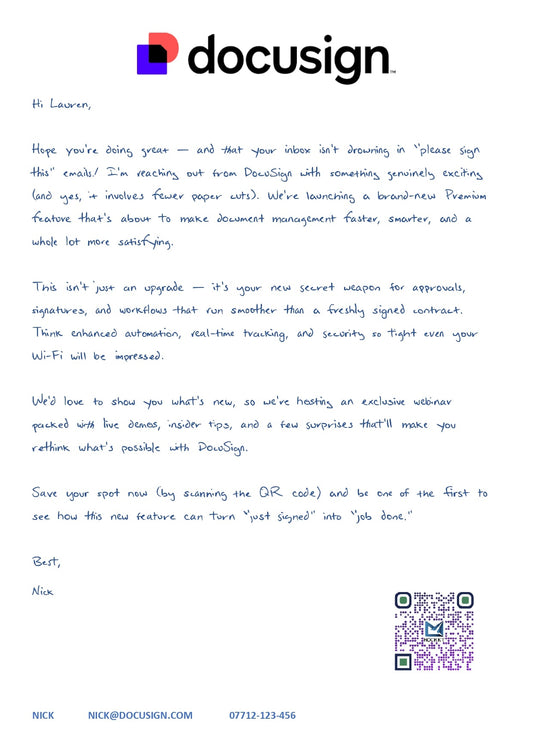 docusign™
Hi Lauren,
Hope you're doing great — and that your inbox isn't drowning in "please sign
this" emails! I'm reaching out from DocuSign with something genuinely exciting
(and yes, it involves fewer paper cuts). We're launching a brand-new Premium
feature that's about to make document management faster, smarter, and a
whole lot more satisfying.
This isn't just an upgrade — it's your new secret weapon for approvals,
signatures, and workflows that run smoother than a freshly signed contract.
Think enhanced automation, real-time tracking, and security so tight even your
Wi-Fi will be impressed.
We'd love to show you what's new, so we're hosting an exclusive webinar
packed with live demos, insider tips, and a few surprises that'll make you
rethink what's possible with DocuSign.
Save your spot now (by scanning the QR code) and be one of the first to
see how this new feature can turn "just signed" into "job done."
Best,
Nick
NICK NICK@DOCUSIGN.COM 07712-123-456